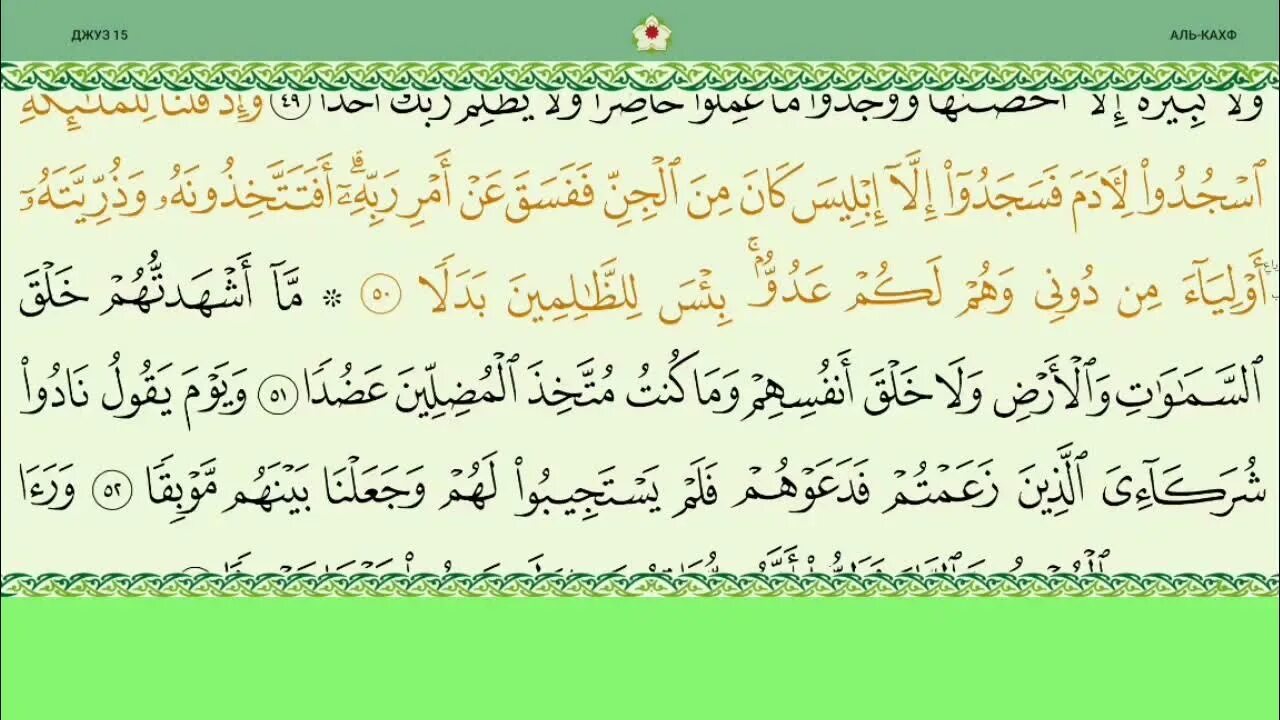 ДЖУЗ 15
АЛЬ-КАХФ
وَلَا كَبِيرَةً إِلَّآ أَحْصَىٰهَا وَوَجَدُوا۟ مَا عَمِلُوا۟ حَاضِرًا وَلَا يَظْلِمُ رَبُّكَ أَحَدًا ٤٩ وَإِذْ قُلْنَا لِلْمَلَـٰٓئِكَةِ
ٱسْجُدُوا۟ لِـَٔادَمَ فَسَجَدُوٓا۟ إِلَّآ إِبْلِيسَ كَانَ مِنَ ٱلْجِنِّ فَفَسَقَ عَنْ أَمْرِ رَبِّهِۦٓ ۗ أَفَتَتَّخِذُونَهُۥ وَذُرِّيَّتَهُۥٓ
أَوْلِيَآءَ مِن دُونِى وَهُمْ لَكُمْ عَدُوٌّۢ ۚ بِئْسَ لِلظَّـٰلِمِينَ بَدَلًا ٥٠ ۞ مَّآ أَشْهَدتُّهُمْ خَلْقَ
ٱلسَّمَـٰوَٰتِ وَٱلْأَرْضِ وَلَا خَلْقَ أَنفُسِهِمْ وَمَا كُنتُ مُتَّخِذَ ٱلْمُضِلِّينَ عَضُدًا ٥١ وَيَوْمَ يَقُولُ نَادُوا۟
شُرَكَآءِىَ ٱلَّذِينَ زَعَمْتُمْ فَدَعَوْهُمْ فَلَمْ يَسْتَجِيبُوا۟ لَهُمْ وَجَعَلْنَا بَيْنَهُم مَّوْبِقًا ٥٢ وَرَءَا